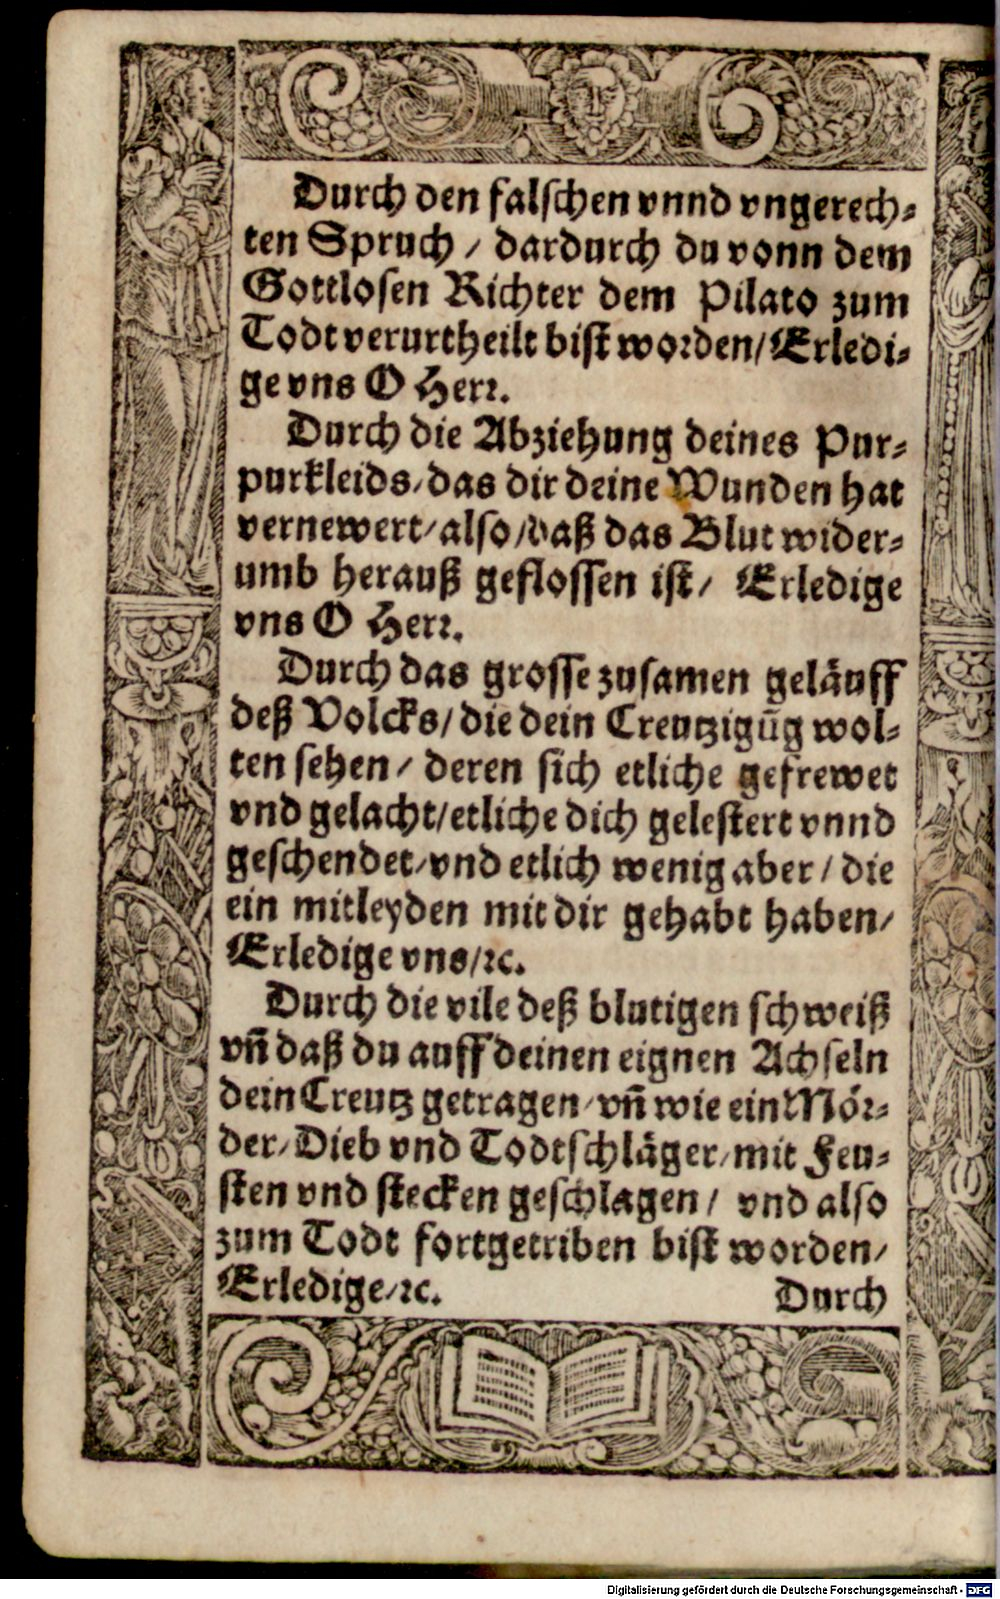 Durch den falschen vnnd vngerech⸗
ten Spruch / dardurch du vonn dem
Gottlosen Richter dem Pilato zum
Todt verurtheilt bist worden/ Erledi⸗
ge vns O Herr.
Durch die Abziehung deines Pur⸗
purkleids/ das dir deine Wunden hat
vernewert/ also/ daß das Blut wider⸗
umb herauß geflossen ist/ Erledige
vns O Herr.
Durch das grosse zusamen geläuff
deß Volcks/ die dein Creutzigūg wol⸗
ten sehen/ deren sich etliche gefrewet
vnd gelacht/ etliche dich gelestert vnnd
geschendet/ vnd etlich wenig aber/ die
ein mitleyden mit dir gehabt haben/
Erledige vns/ ꝛc.
Durch die vile deß blutigen schweiß
vñ daß du auff deinen eignen Achseln
dein Creutz getragen/ vñ wie ein Mör⸗
der/ Dieb vnd Todtschläger/ mit Feu⸗
sten vnd stecken geschlagen/ vnd also
zum Todt fortgetriben bist worden/
Erledige/ ꝛc. Durch
Digitalisierung gefördert durch die Deutsche Forschungsgemeinschaft - DFG